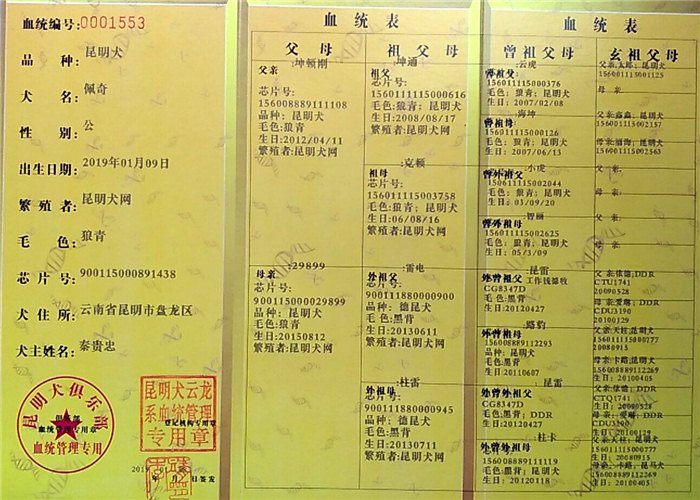 血统编号:0001553
品 种: 昆明犬
犬 名: 佩奇
性 别: 公
出生日期: 2019年01月09日
繁 殖 者: 昆明犬网
毛 色: 狼青
芯 片 号: 900115000891438
犬 住 所: 云南省昆明市盘龙区
犬主姓名: 秦贵忠
昆明犬俱乐部
血统管理专用章
血统管理专用
昆明犬云龙
系血统管理
专用章
登记机构专用章
2019 年 月 日签发
血 统 表
父 母
:坤顿刚
父亲
芯片号:
156008889111108
品种: 昆明犬
毛色:狼青
生日:2012/04/11
繁殖者:昆明犬网
:29899
母亲
芯片号:
900115000029899
品种: 昆明犬
毛色:狼青
生日:20150812
繁殖者:昆明犬网
祖 父 母
:坤通
祖父
芯片号:
156011115000616
毛色:狼青; 昆明犬
生日:2008/08/17
繁殖者:昆明犬网
:克顿
祖母
芯片号:
156011115003758
毛色:狼青; 昆明犬
生日:06/08/16
繁殖者:昆明犬网
:雷电
外祖父
芯片号:
900118880000900
品种: 德昆犬
毛色:黑背
生日:20130611
繁殖者:昆明犬网
:杜雷
外祖母
芯片号:
900118880000945
品种: 昆明犬
毛色:黑背
生日:20130711
繁殖者:昆明犬网
血 统 表
曾 祖 父 母
:云虎
曾祖父:
156011115000376
毛色: 狼青; 昆明犬
生日: 2007/02/08
:海坤
曾祖母:
156011115000126
毛色: 狼青; 昆明犬
生日: 2007/06/13
:小虎
曾外祖父
156011115002044
毛色: 狼青; 昆明犬
生日: 03/09/20
:智丽
曾外祖母:
156011115002625
毛色: 狼青; 昆明犬
生日: 05/3/09
:昆雷
外曾祖父:
CG8347D 工作钱德牧
毛色:黑背
生日:20120427
:路豹
外曾祖母
156008889112293
品种:昆明犬
毛色:黑背
生日:20110607
:昆雷
外曾外祖父
CG8347D
毛色:黑背; DDR
生日:20120427
:杜卡
外曾外祖母
156008889111119
毛色:黑背; 昆明犬
生日: 20120118
玄 祖 父 母
父 亲:太郎; 昆明犬
156001115001125
母 亲:
父 亲:鑫鑫; 昆明犬
156001115002157
母 亲:福海; 昆明犬
156001115002563
父 亲:
母 亲:
父 亲:
母 亲:
父 亲:依德; DDR
CTU1741
20090528
母 亲:爱琳; DDR
CDU3390
20100129
父 亲:天柱;昆明犬
156011115000777
20080915
母 亲:卡路;昆明犬
156008889112293
生日:20100405
父 亲:依德; DDR
CTQ1741
生日: 20090528
母 亲:爱琳; DDR
CDU3390
生日: 20100129
父 亲:天柱; 昆明犬
156011115000777
生日: 20080915
母 亲: 卡路; 昆马犬
156008889112293
生日: 20100405